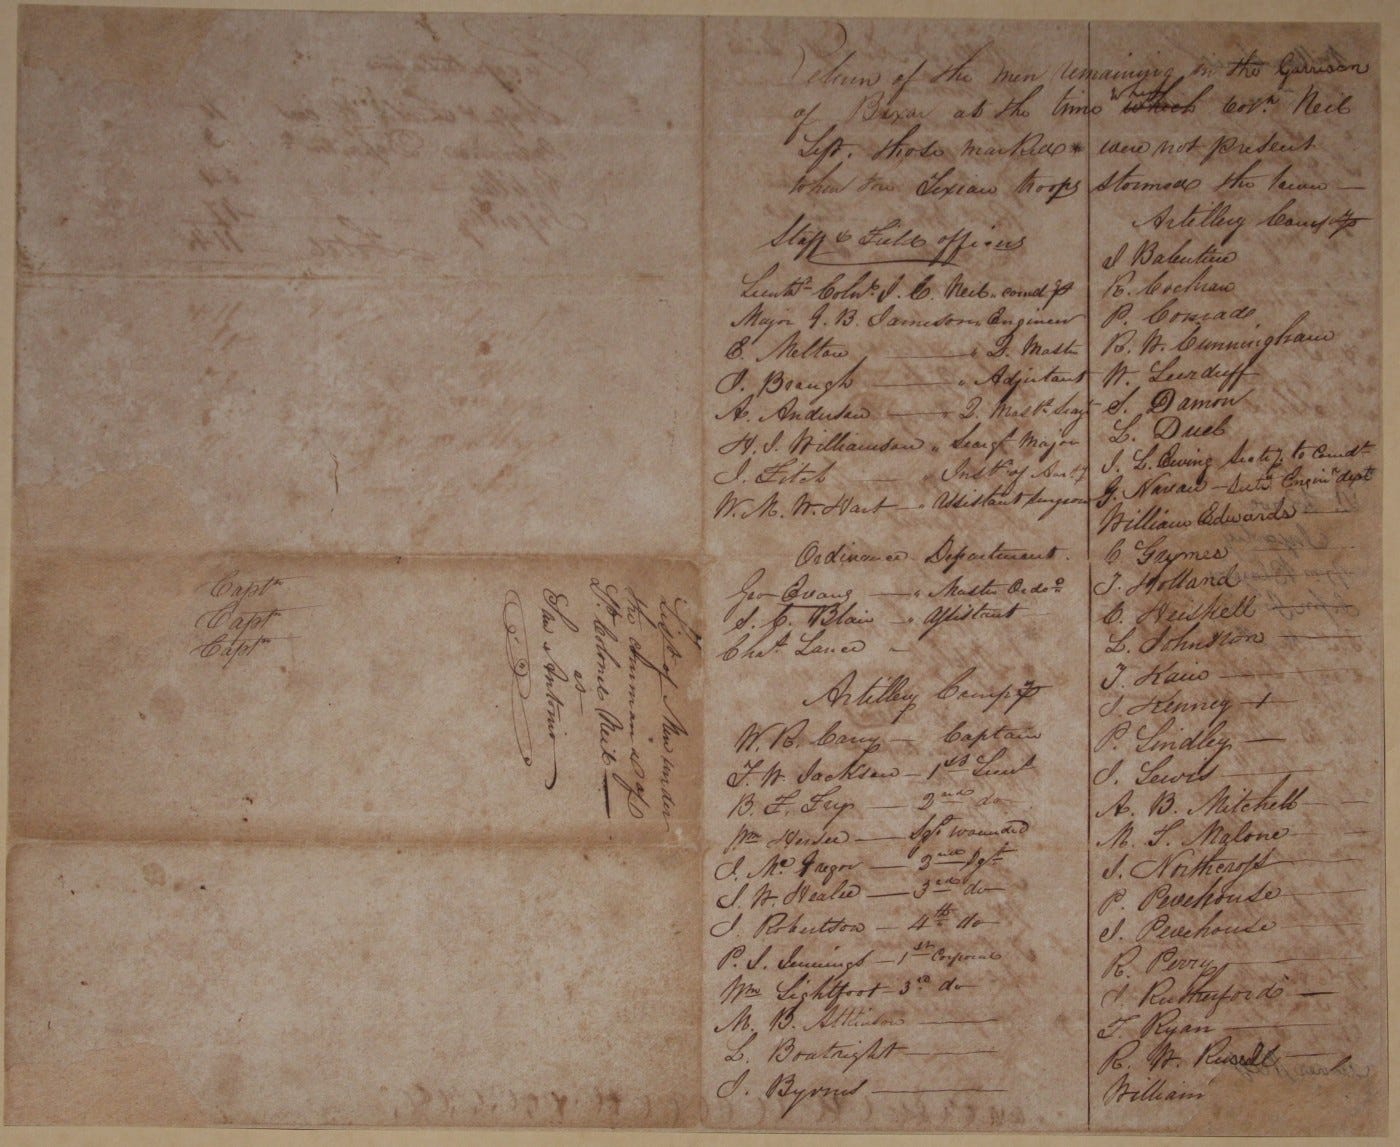 Return of the men remaining in the Garrison
of Bexar at the time when which Coln. Neil
Left. those marked + were not present
when the Texian troops stormed the town —
Staff & Field officers
Lieutt. Colnl. J. C. Neil " comdg
Major G. B. Jameson, Engineer
E. Melton — " Q. Master
J. Baugh — " Adjutant
A. Anderson — " Q. Mastr. Sergt
H. J. Williamson " Seargt Major
J. Fitch — " Instr. of Arty
W. M. W. Hart — " Assistant surgeon
Ordinance Department.
Geo Evans — " Master Ordn.
S. C. Blair " assistant
Chas. Lance "
Artillery Compy
W. R. Cary — Captain
F. W. Jackson — 1st Lieut
B. F. Fry — 2nd do
Wm Hersee — Sgt wounded
J. Mc Gregor — 2nd Sgt.
J. W. Healee — 3rd do
J. Robertson — 4th do
P. S. Jennings — 1st Corporal
Wm Lightfoot — 3rd do
M. B. Attkinson —
L. Boatright —
J. Byrnes —
Artillery Compy
J Balentine
R. Cochran
P. Conrad
R. W. Cunningham
W.
S. Damon
L. Duel
J. L. Ewing Secty. to Comdt.
G. Navan — Secty Enginr. dept
William Edwards —
C Grymes
T. Holland
C. Heiskell
L. Johnson —
T. Kain —
J. Kenney — +
P. Lindley —
J. Lewis —
A. B. Mitchell —
M. T. Malone —
J. Northcross —
P. Pevehouse —
J. Pevehouse —
R. Perry —
J. Rutherford —
T. Ryan —
R. W. Russell —
William
List of Men under
the command of
Lt. Colonel Neil —
at
San Antonio
Captn
Captn
Captn